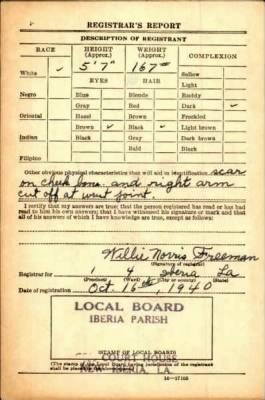 REGISTRAR'S REPORT
DESCRIPTION OF REGISTRANT
RACE HEIGHT (Approx.) WEIGHT (Approx.) COMPLEXION
White ✓ 5'7" 167# Sallow
Light
EYES HAIR
Negro Blue Blonde Ruddy
Gray Red Dark ✓
Oriental Hazel Brown Freckled
Brown ✓ Black ✓ Light brown
Indian Black Gray Dark brown
Bald Black
Filipino
Other obvious physical characteristics that will aid in identification scar
on cheek bone and right arm
cut off at wrist joint.
I certify that my answers are true; that the person registered has read or has had
read to him his own answers; that I have witnessed his signature or mark and that
all of his answers of which I have knowledge are true, except as follows:
Willie Norris Freeman
(Signature of registrar)
Registrar for 1 4 Iberia La
(City or county) (State)
Date of registration Oct. 16th, 1940
LOCAL BOARD
IBERIA PARISH
COURT HOUSE
NEW IBERIA, LA.
(STAMP OF LOCAL BOARD)
(The stamp of the Local Board having jurisdiction of the registrant
shall be placed in the above space.)